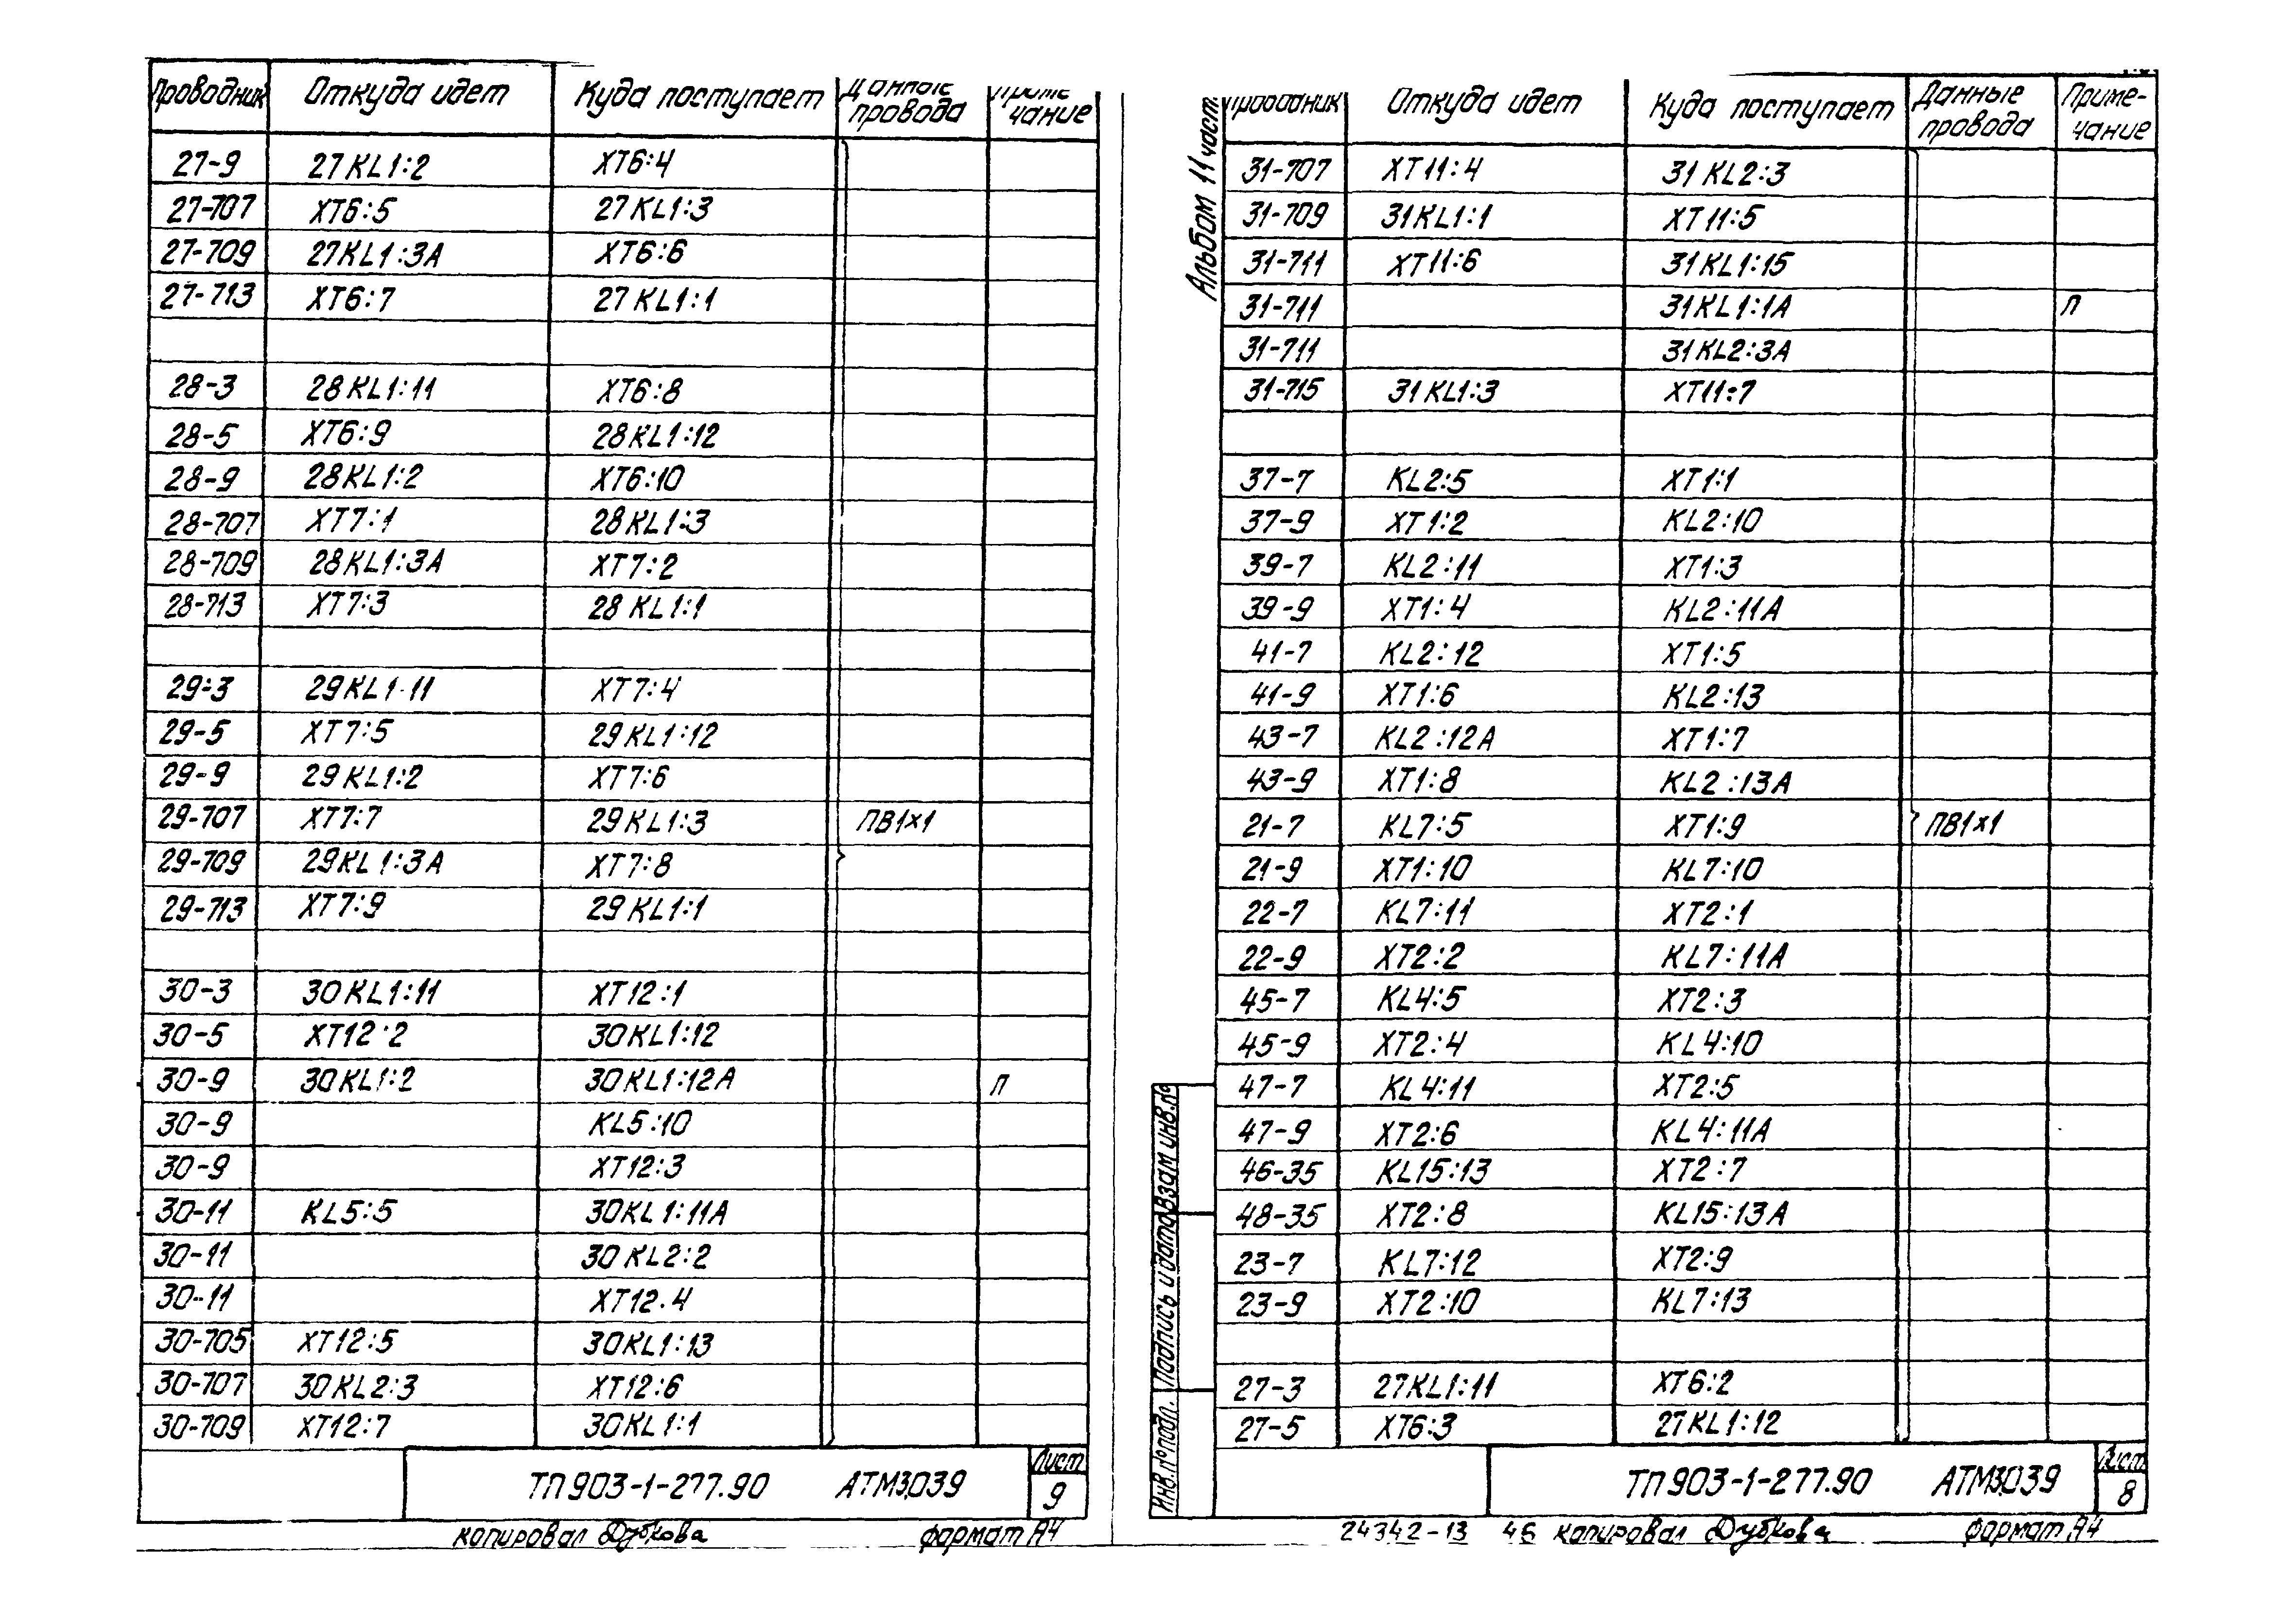 Проводник Откуда идет Куда поступает Данные провода Примечание
27-9 27KL1:2 XT6:4
27-707 XT6:5 27KL1:3
27-709 27KL1:3A XT6:6
27-713 XT6:7 27KL1:1
28-3 28KL1:11 XT6:8
28-5 XT6:9 28KL1:12
28-9 28KL1:2 XT6:10
28-707 XT7:1 28KL1:3
28-709 28KL1:3A XT7:2
28-713 XT7:3 28KL1:1
29-3 29KL1:11 XT7:4
29-5 XT7:5 29KL1:12
29-9 29KL1:2 XT7:6
29-707 XT7:7 29KL1:3 ПВ1×1
29-709 29KL1:3A XT7:8
29-713 XT7:9 29KL1:1
30-3 30KL1:11 XT12:1
30-5 XT12:2 30KL1:12
30-9 30KL1:2 30KL1:12A П
30-9 KL5:10
30-9 XT12:3
30-11 KL5:5 30KL1:11A
30-11 30KL2:2
30-11 XT12.4
30-705 XT12:5 30KL1:13
30-707 30KL2:3 XT12:6
30-709 XT12:7 30KL1:1
ТП903-1-277.90 АТМ3.039 Лист 9
копировал Дубкова формат А4
Альбом 11 част.
Проводник Откуда идет Куда поступает Данные провода Примечание
31-707 XT11:4 31KL2:3
31-709 31KL1:1 XT11:5
31-711 XT11:6 31KL1:15
31-711 31KL1:1A П
31-711 31KL2:3A
31-715 31KL1:3 XT11:7
37-7 KL2:5 XT1:1
37-9 XT1:2 KL2:10
39-7 KL2:11 XT1:3
39-9 XT1:4 KL2:11A
41-7 KL2:12 XT1:5
41-9 XT1:6 KL2:13
43-7 KL2:12A XT1:7
43-9 XT1:8 KL2:13A
21-7 KL7:5 XT1:9 ПВ1×1
21-9 XT1:10 KL7:10
22-7 KL7:11 XT2:1
22-9 XT2:2 KL7:11A
45-7 KL4:5 XT2:3
45-9 XT2:4 KL4:10
47-7 KL4:11 XT2:5
47-9 XT2:6 KL4:11A
46-35 KL15:13 XT2:7
48-35 XT2:8 KL15:13A
23-7 KL7:12 XT2:9
23-9 XT2:10 KL7:13
27-3 27KL1:11 XT6:2
27-5 XT6:3 27KL1:12
Инв.№подл. Подпись и дата Взам инв.№
ТП903-1-277.90 АТМ3.039 Лист 8
24342-13 46 копировал Дубкова формат А4